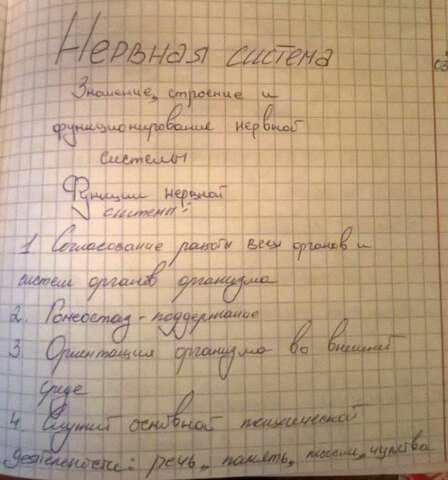 Нервная система
Значение, строение и
функционирование нервной
системы
Функции нервной
системы:
1 Согласование работы всех органов и
систем органов организма
2. Гомеостаз - поддержание
3 Ориентация организма во внешней
среде
4 Служит основной психической
деятельности: речь, память, мысли, чувства
03